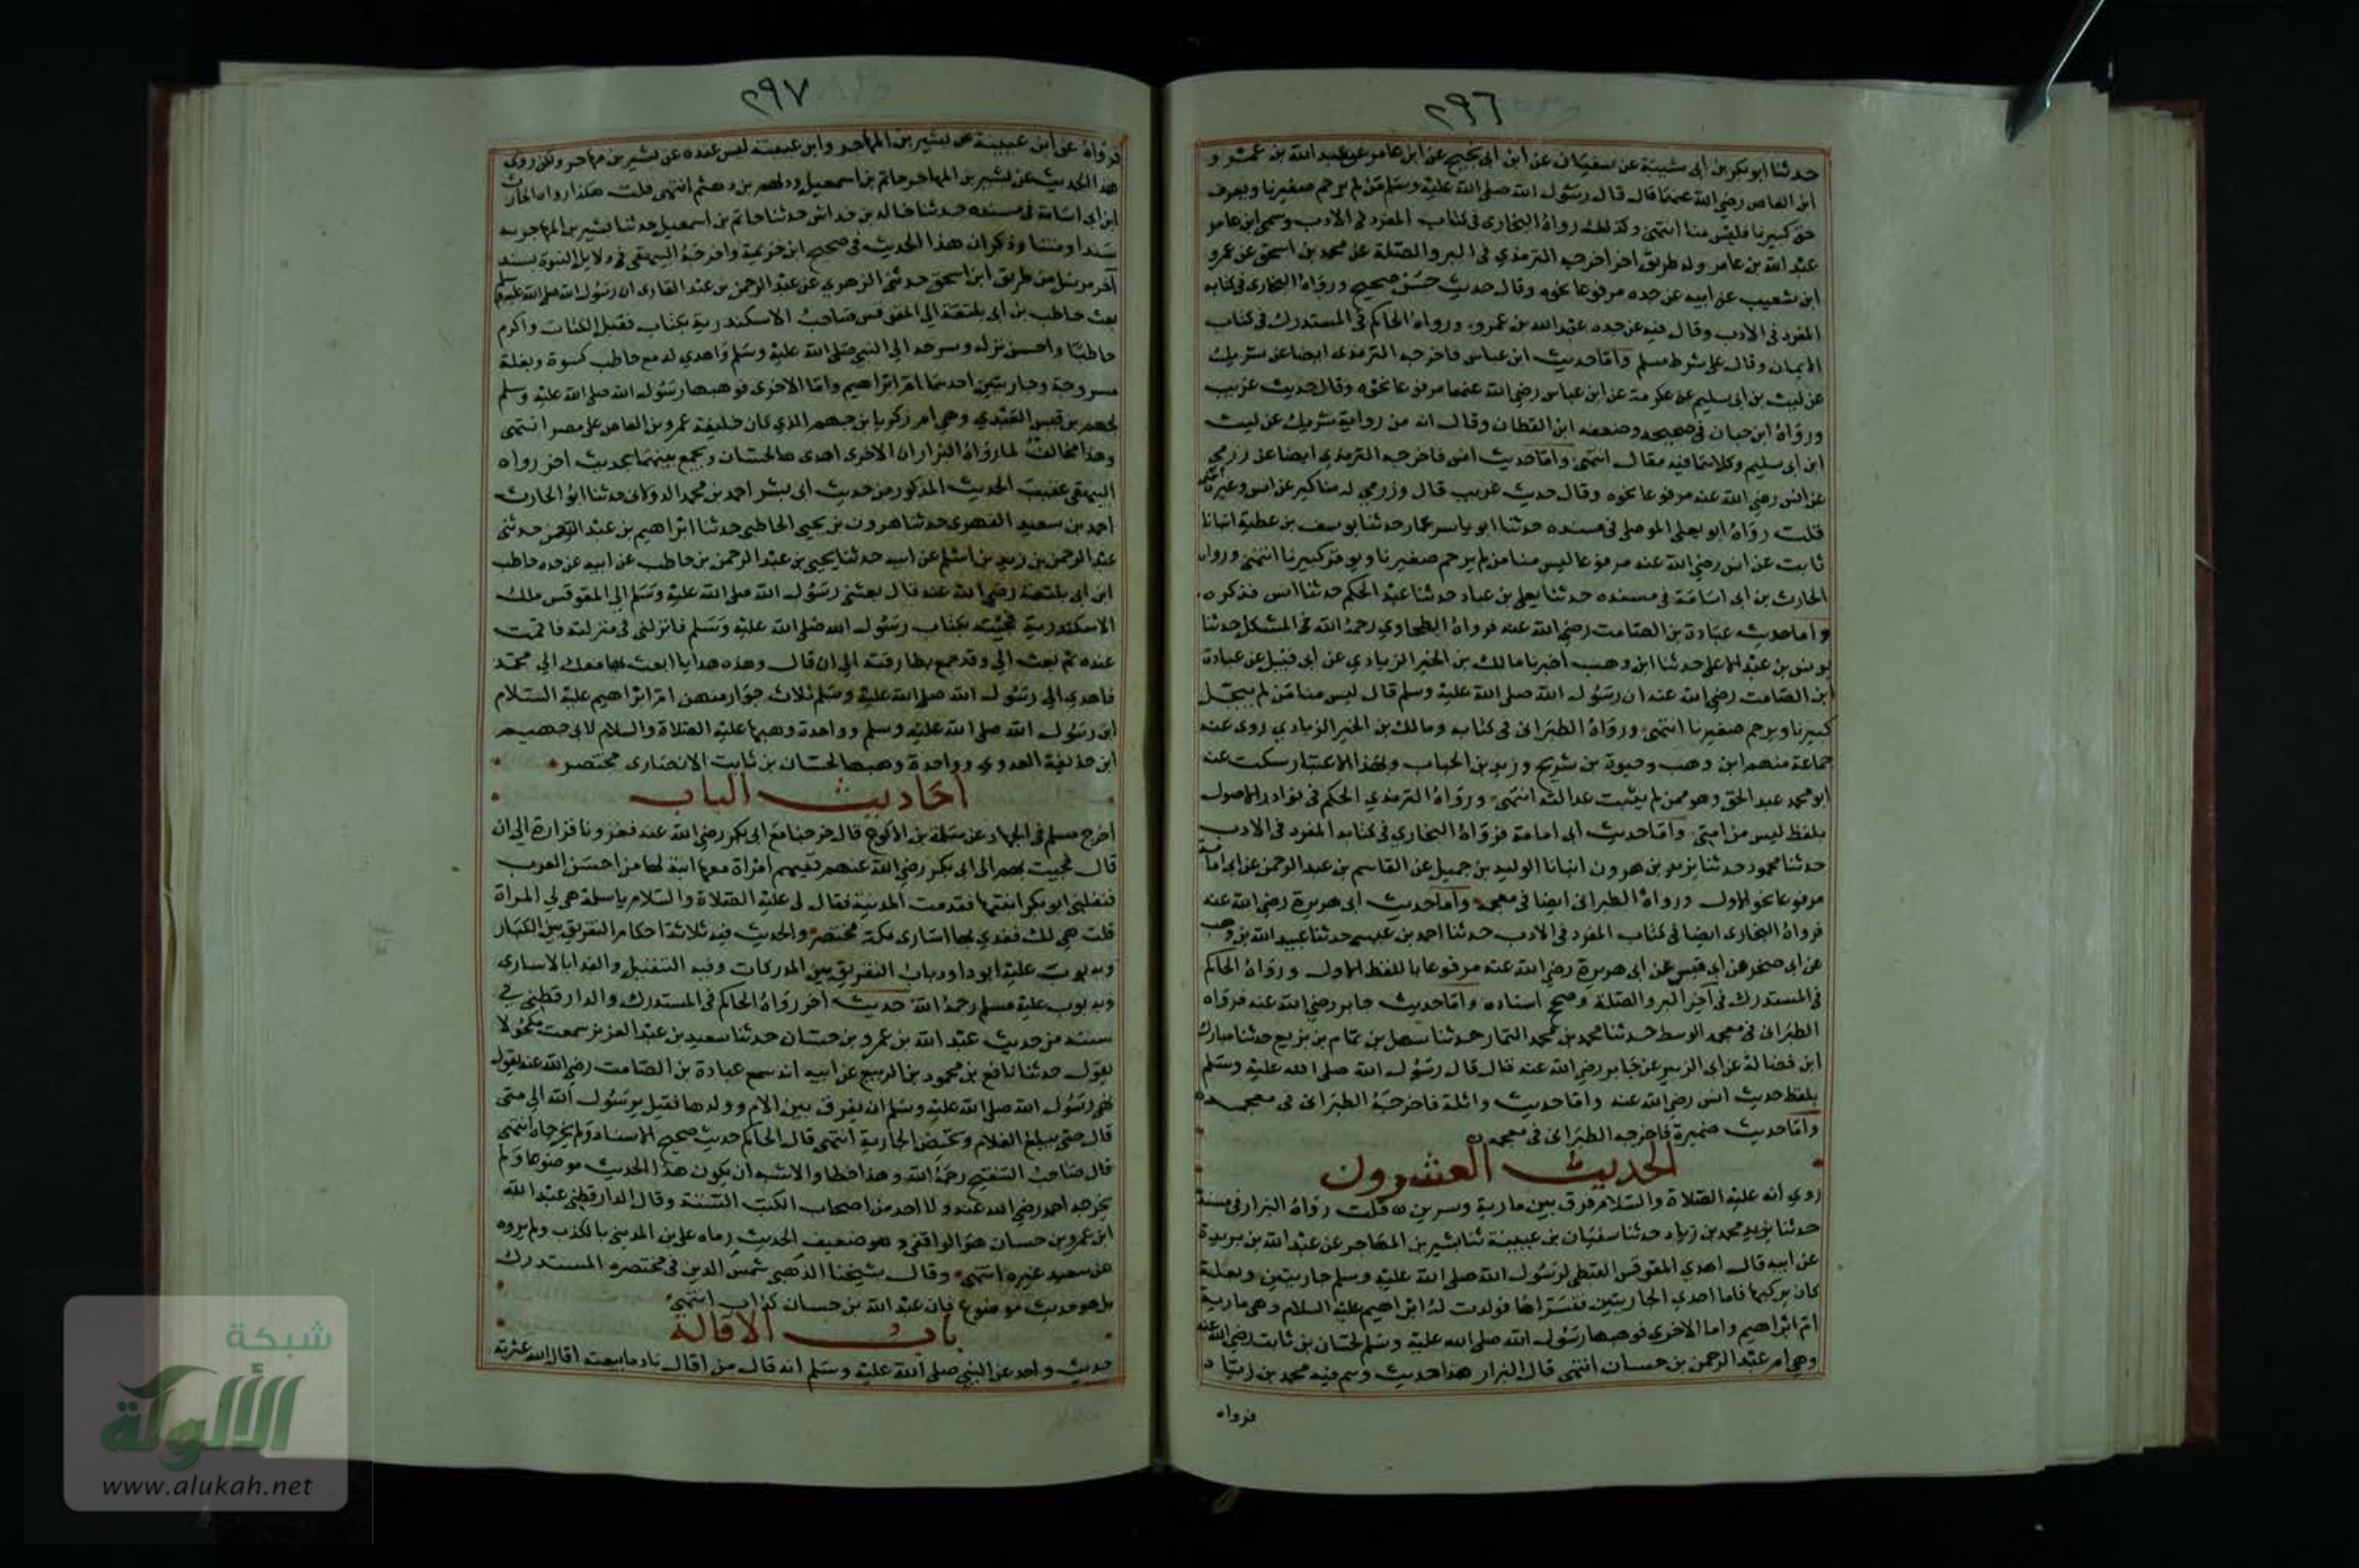 ٢٩٦
حدثنا ابو بكر بن أبي شيبة عن سفيان عن ابن أبي نجيح عن ابن عامر عن عبد الله بن عمرو
ابن العاص رضي الله عنهما قال قال رسول الله صلى الله عليه وسلم من لم يرحم صغيرنا ويعرف
حق كبيرنا فليس منا انتهى وكذلك رواه البخاري في كتاب المفرد في الادب وسمى ابن عامر
عبد الله بن عامر وله طريق اخر اخرجه الترمذي في البر والصلة عن محمد بن اسحق عن عمرو
ابن شعيب عن أبيه عن جده مرفوعا نحوه وقال حديث حسن صحيح ورواه البخاري في كتابه
المفرد في الادب وقال فيه عن جده عبد الله بن عمرو ورواه الحاكم في المستدرك في كتاب
الايمان وقال على شرط مسلم وأما حديث ابن عباس فاخرجه الترمذي ايضا عن شريك
عن ليث بن أبي سليم عن عكرمة عن ابن عباس رضي الله عنهما مرفوعا نحوه وقال حديث غريب
ورواه ابن حبان في صحيحه وضعفه ابن القطان وقال انه من رواية شريك عن ليث
ابن أبي سليم وكلاهما فيه مقال انتهى وأما حديث انس فاخرجه الترمذي ايضا عن زربي
عن انس رضي الله عنه مرفوعا نحوه وقال حديث غريب قال وزربي له مناكير عن انس وغيره انتهى
قلت رواه ابو يعلى الموصلي في مسنده حدثنا ابو ياسر عمار حدثنا يوسف بن عطية انبانا
ثابت عن انس رضي الله عنه مرفوعا ليس منا من لم يرحم صغيرنا ويوقر كبيرنا انتهى ورواه
الحارث بن أبي اسامة في مسنده حدثنا يعلى بن عباد حدثنا عبد الحكم حدثنا انس فذكره
وأما حديث عبادة بن الصامت رضي الله عنه فرواه الطحاوي رحمه الله في المشكل حدثنا
يونس بن عبد الاعلى حدثنا ابن وهب أخبرنا مالك بن الخير الزيادي عن أبي قبيل عن عبادة
ابن الصامت رضي الله عنه ان رسول الله صلى الله عليه وسلم قال ليس منا من لم يبجل
كبيرنا ويرحم صغيرنا انتهى ورواه الطبراني في كتابه ومالك بن الخير الزيادي روى عنه
جماعة منهم ابن وهب وحيوة بن شريح وزيد بن الحباب وبهذا الاعتبار سكت عنه
ابو محمد عبد الحق وهو ممن لم يثبت عدالته انتهى ورواه الترمذي الحكم في نوادر الاصول
بلفظ ليس من امتي وأما حديث أبي امامة فرواه البخاري في كتابه المفرد في الادب
حدثنا محمود حدثنا يزيد بن هرون انبانا الوليد بن جميل عن القاسم بن عبد الرحمن عن ابي امامة
مرفوعا نحو الاول ورواه الطبراني ايضا في معجمه وأما حديث أبي هريرة رضي الله عنه
فرواه البخاري ايضا في كتاب المفرد في الادب حدثنا احمد بن عيسى حدثنا عبيد الله بن وهب
عن ابي صخر عن ابي قيس عن أبي هريرة رضي الله عنه مرفوعا باللفظ الاول ورواه الحاكم
في المستدرك في آخر البر والصلة وصحح اسناده وأما حديث جابر رضي الله عنه فرواه
الطبراني في معجمه الوسط حدثنا محمد بن محمد التمار حدثنا سهل بن تمام بن بزيع حدثنا مبارك
ابن فضالة عن ابي الزبير عن جابر رضي الله عنه قال قال رسول الله صلى الله عليه وسلم
بلفظ حديث انس رضي الله عنه وأما حديث واثلة فاخرجه الطبراني في معجمه
وأما حديث ضميرة فاخرجه الطبراني في معجمه
الحديث العشرون
روي انه عليه الصلاة والسلام فرق بين مارية وسرين قلت رواه البزار في مسنده
حدثنا محمد بن زياد حدثنا سفيان بن عيينة ثنا بشير بن المهاجر عن عبد الله بن بريدة
عن ابيه قال اهدى المقوقس القبطي لرسول الله صلى الله عليه وسلم جاريتين وبغلة
كان يركبها فاما احدى الجاريتين فتسراها فولدت له ابراهيم عليه السلام وهي مارية
ام ابراهيم واما الاخرى فوهبها رسول الله صلى الله عليه وسلم لحسان بن ثابت رضي الله عنه
وهي ام عبد الرحمن بن حسان انتهى قال البزار هذا حديث وهم فيه محمد بن زياد
فرواه
٢٩٧
فرواه عن ابن عيينة عن بشير بن المهاجر وابن عيينة ليس عنده عن بشير بن مهاجر ولكن روى
هذا الحديث عن بشير بن المهاجر حاتم بن اسمعيل ودلهم بن دهثم انتهى قلت هكذا رواه الحارث
ابن ابي اسامة في مسنده حدثنا خالد بن خداش حدثنا حاتم بن اسمعيل حدثنا بشير بن المهاجر به
سندا ومتنا وذكر ان هذا الحديث في صحيح ابن خزيمة واخرجه البيهقي في دلايل النبوة بسند
آخر مرسل من طريق ابن اسحق حدثني الزهري عن عبد الرحمن بن عبد القاري ان رسول الله صلى الله عليه وسلم
بعث حاطب بن أبي بلتعة الى المقوقس صاحب الاسكندرية بكتاب فقبل الكتاب واكرم
حاطبا واحسن نزله وسرحه الى النبي صلى الله عليه وسلم واهدى له مع حاطب كسوة وبغلة
مسروجة وجاريتين احدهما ام ابراهيم وأما الاخرى فوهبها رسول الله صلى الله عليه وسلم
لجهم بن قيس العبدي وهي ام زكريا بن جهم الذي كان خليفة عمرو بن العاص على مصر انتهى
وهذا مخالف لما رواه البزار ان الاخرى اهدى لحسان ويجمع بينهما بحديث اخر رواه
البيهقي عقيب الحديث المذكور من حديث ابي بشر احمد بن محمد الدولابي حدثنا ابو الحارث
احمد بن سعيد الفهري حدثنا هرون بن يحيى الحاطبي حدثنا ابراهيم بن عبد الرحمن حدثني
عبد الرحمن بن زيد بن اسلم عن ابيه حدثنا يحيى بن عبد الرحمن بن حاطب عن ابيه عن جده حاطب
ابن ابي بلتعة رضي الله عنه قال بعثني رسول الله صلى الله عليه وسلم الى المقوقس ملك
الاسكندرية فجئته بكتاب رسول الله صلى الله عليه وسلم فانزلني في منزلته فاقمت
عنده ثم بعث الي وقد جمع بطارقته الى ان قال وهذه هدايا ابعث بها معك الى محمد
فاهدى الى رسول الله صلى الله عليه وسلم ثلاث جوار منهن ام ابراهيم عليه السلام
ابن رسول الله صلى الله عليه وسلم وواحدة وهبها عليه الصلاة والسلام لابي جهيم
ابن حذيفة العدوي وواحدة وهبها لحسان بن ثابت الانصاري مختصر
أحاديث الباب
اخرج مسلم في الجهاد عن سلمة بن الاكوع قال خرجنا مع ابي بكر رضي الله عنه فغزونا فزارة الى ان
قال فجيت بهم الى ابي بكر رضي الله عنه فيهم امراة معها ابنة لها من احسن العرب
فنفلني ابو بكر ابنتها فقدمت المدينة فقال لي عليه الصلاة والسلام يا سلمة هب لي المراة
قلت هي لك ففدي بها اسارى بمكة مختصر والحديث فيه ثلاثة احكام التفريق بين الكبار
وبه بوب عليه ابو داود باب التفريق بين المدركات وفيه التنفيل والفدا بالاسارى
وبه بوب عليه مسلم رحمه الله حديث اخر رواه الحاكم في المستدرك والدارقطني في
سننه من حديث عبد الله بن عمرو بن حسان حدثنا سعيد بن عبد العزيز سمعت مكحولا
يقول حدثنا نافع بن محمود بن الربيع عن ابيه انه سمع عبادة بن الصامت رضي الله عنه يقول
نهى رسول الله صلى الله عليه وسلم ان يفرق بين الام وولدها فقيل يرسول الله الى متى
قال حتى يبلغ الغلام وتحيض الجارية انتهى قال الحاكم حديث صحيح الاسناد ولم يخرجاه انتهى
قال صاحب التنقيح رحمه الله وهذا خطا والاشبه ان يكون هذا الحديث موضوعا ولم
يخرجه احمد رضي الله عنه ولا احد من اصحاب الكتب الستة وقال الدارقطني عبد الله
ابن عمرو بن حسان هو الواقفي وهو ضعيف الحديث رماه علي بن المديني بالكذب ولم يروه
عن سعيد غيره انتهى وقال شيخنا الذهبي شمس الدين في مختصره المستدرك
بل هو حديث موضوع فان عبد الله بن حسان كذاب انتهى
باب الاقالة
حديث واحد عن النبي صلى الله عليه وسلم انه قال من اقال نادما بيعته اقال الله عثرته
شبكة
الألوكة
www.alukah.net